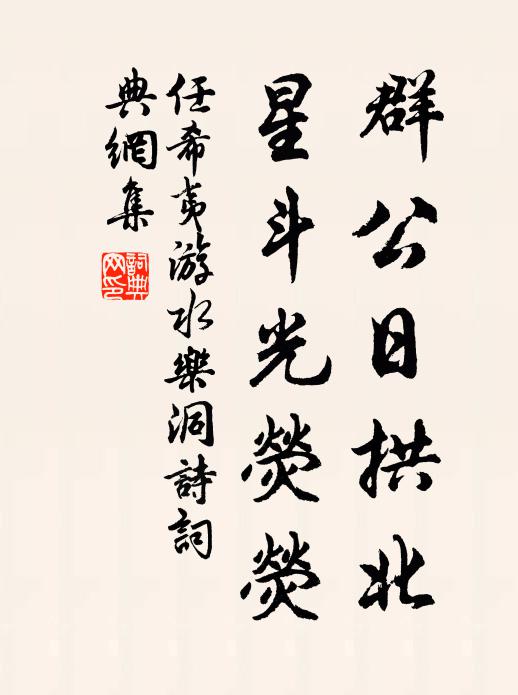 群公日拱北
星斗光熒熒
任希夷游水樂洞詩詞
典網集
詞典網印